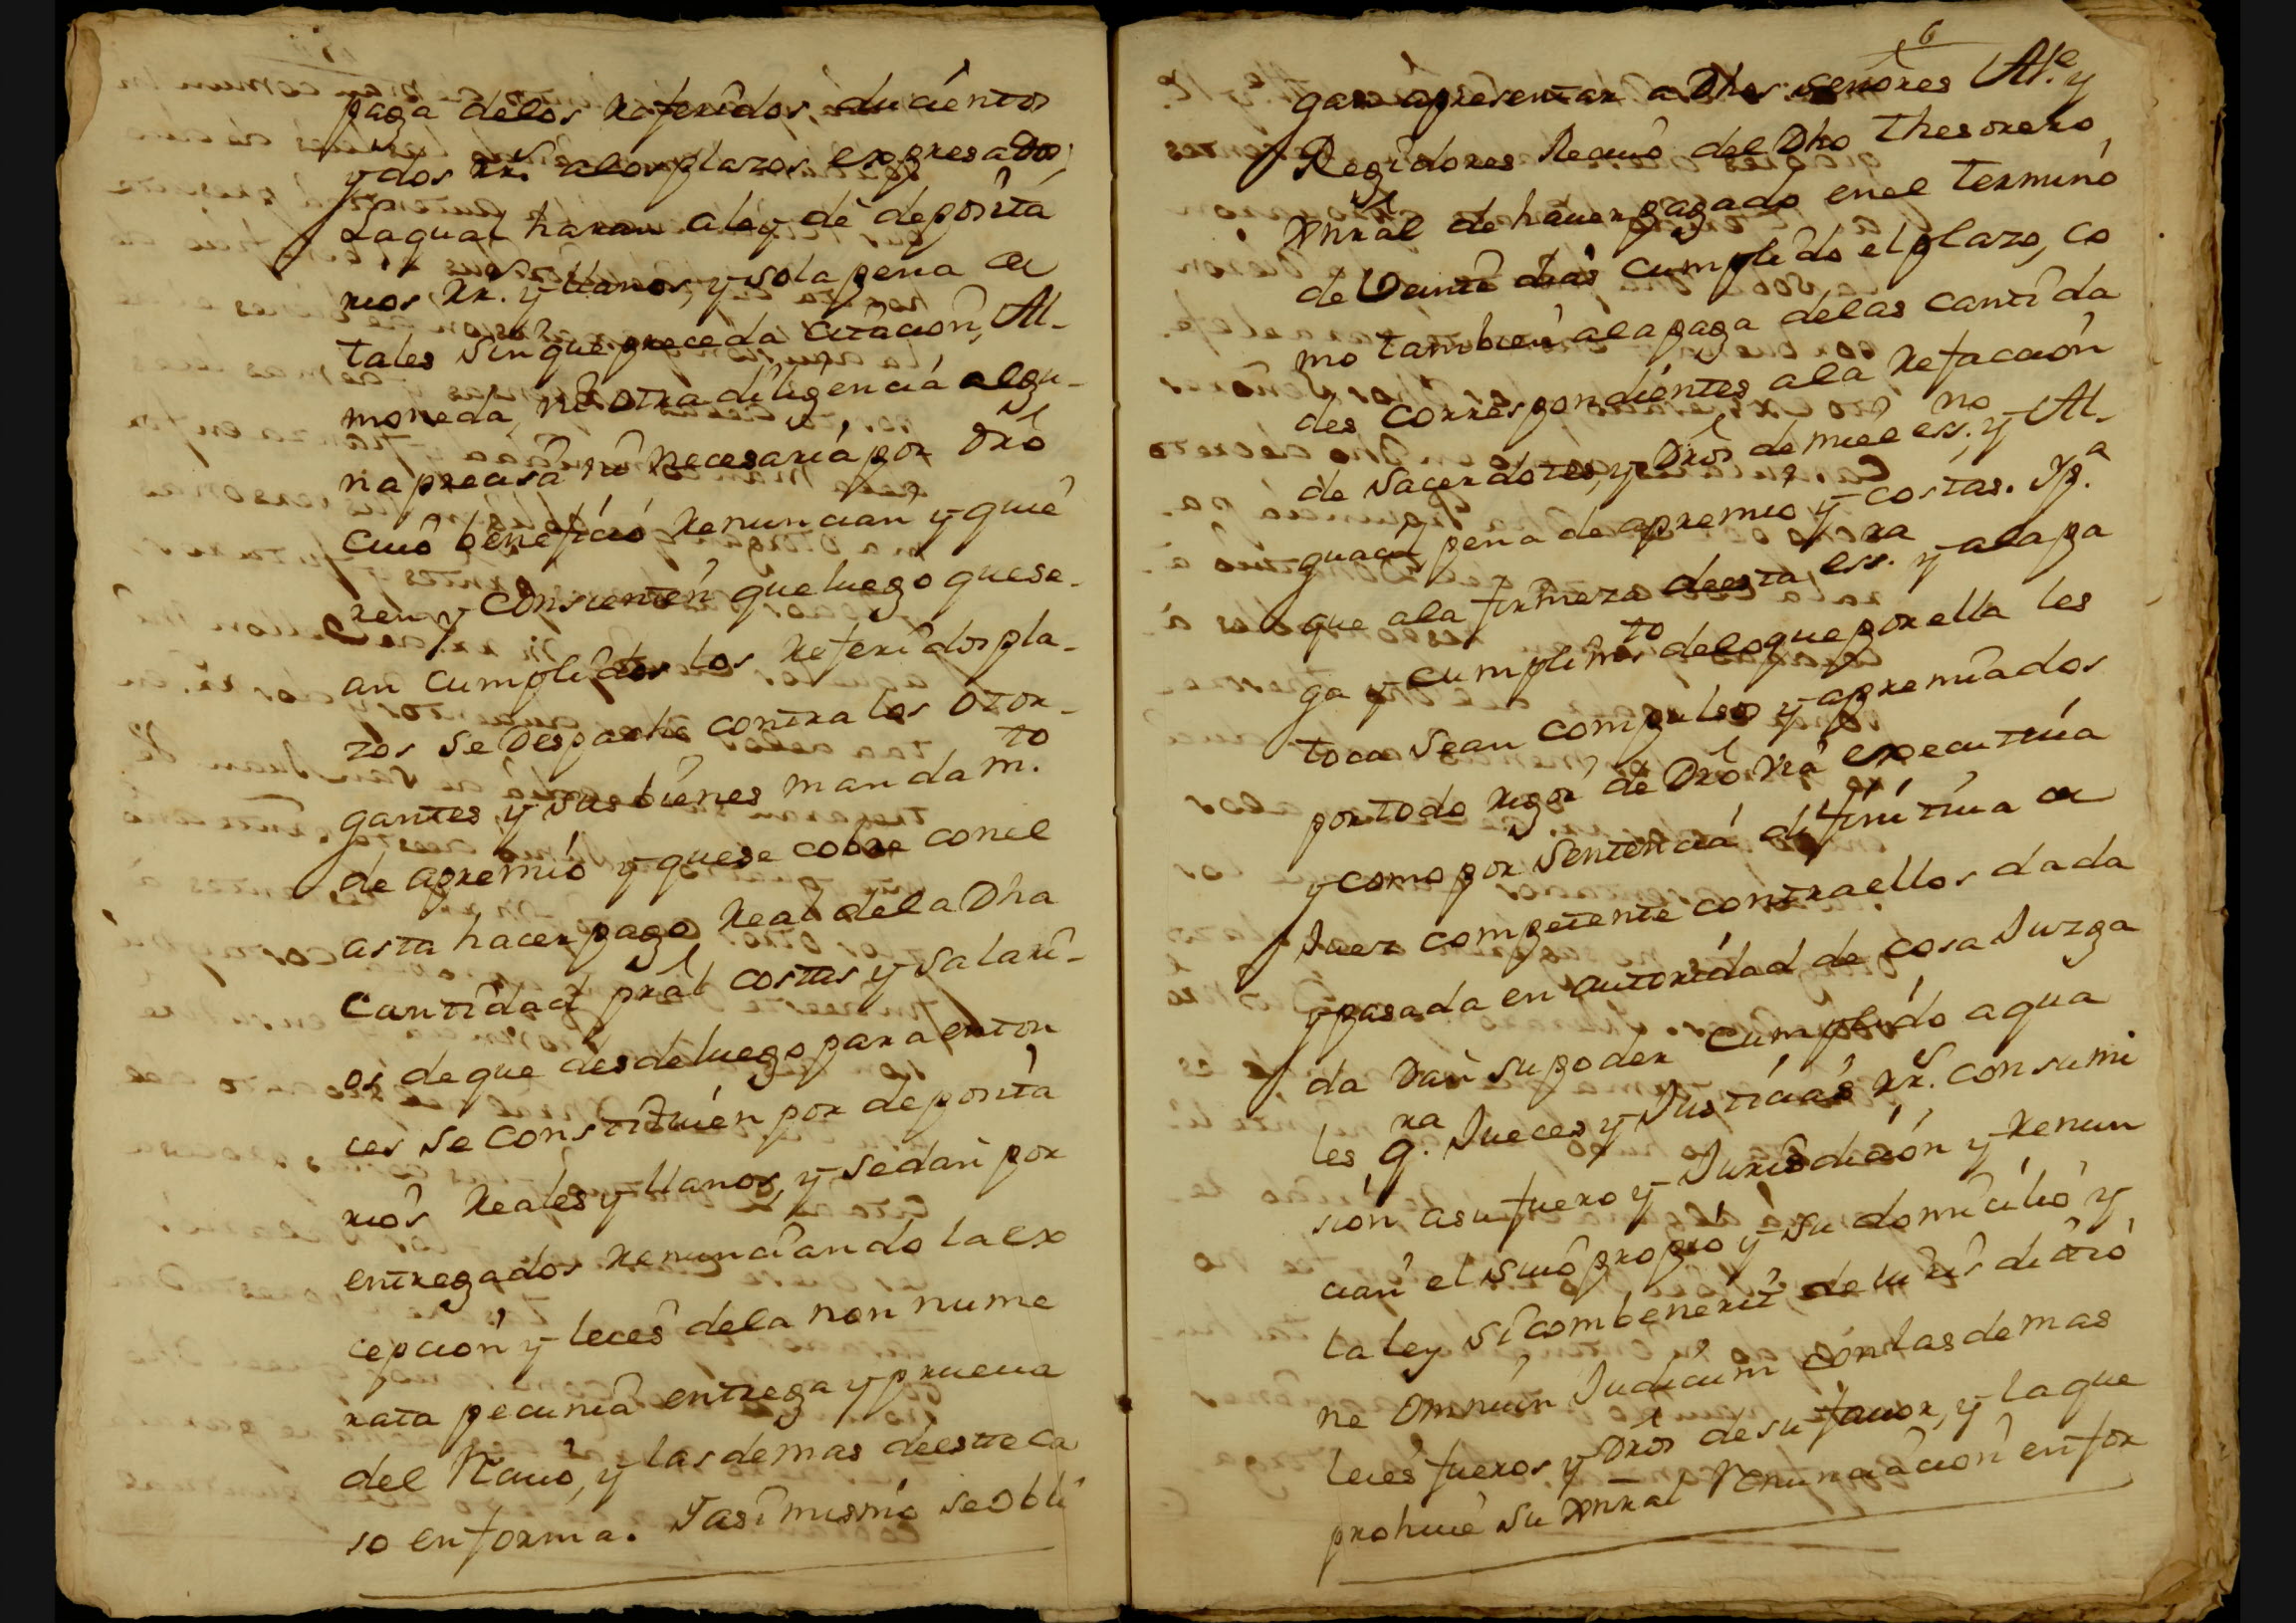 paga delos Referidos, ducientos
y dos RR.s alos plazos expresados,
Laqual haran aley de deposita
rios RR.s y llanos, y sola pena de
tales sin que preceda Citacion, Al-
moneda, ni otra diligencia algu-
na precisa ni necesaria por Dro
Cuio beneficio Renuncian y quie
ren y Consienten que luego que se-
an Cumplidos los Referidos pla-
zos se Despache contra los Otor-
gantes, y sus bienes mandam.to
de apremio y que se cobre con el
asta hacer pago Real dela Dha
Cantidad pral costas y salari-
os de que desde luego para enton
ces se Constituien por deposita
rios Reales y llanos, y se dan por
entregados Renunciando la ex
cepcion y leies dela non nume
rata pecunia entrega y prueua
del Reciuo, y las demas deeste ca
so en forma. Y asi mismo se obli
6
gan apresentar a Dhos señores Al.e y
Regidores Reciuo del Dho Thesorero
Gnral de hauer pagado en el Termino
de Veinte dias Cumplido el plazo, co
mo tambien ala paga delas cantida
des Correspondientes ala Refaccion
de Sacerdotes, y Dros de miel ess.no y Al-
guacil pena de apremio y costas. Y p.a
que ala firmeza deesta ess.ra y ala pa
ga y cumplim.to delo que por ella les
toca sean compulsos y apremiados
por todo rigor de Dro via executiua
y como por Sentencia difinitiua de
Juez competente contra ellos dada
y pasada en autoridad de cosa Juzga
da Dan su poder Cumplido a qua
les q.ra Jueces y Justicias RR.s con sumi
sion asu fuero y Jurisdicion y Renun
cian el suio propio y su domicilio y
la ley si combenerit de Jurisdictio
ne Omniun Judicum con las demas
leies fueros y Dros de su fauor, y la que
prohiue su Gnral Renunciacion en for